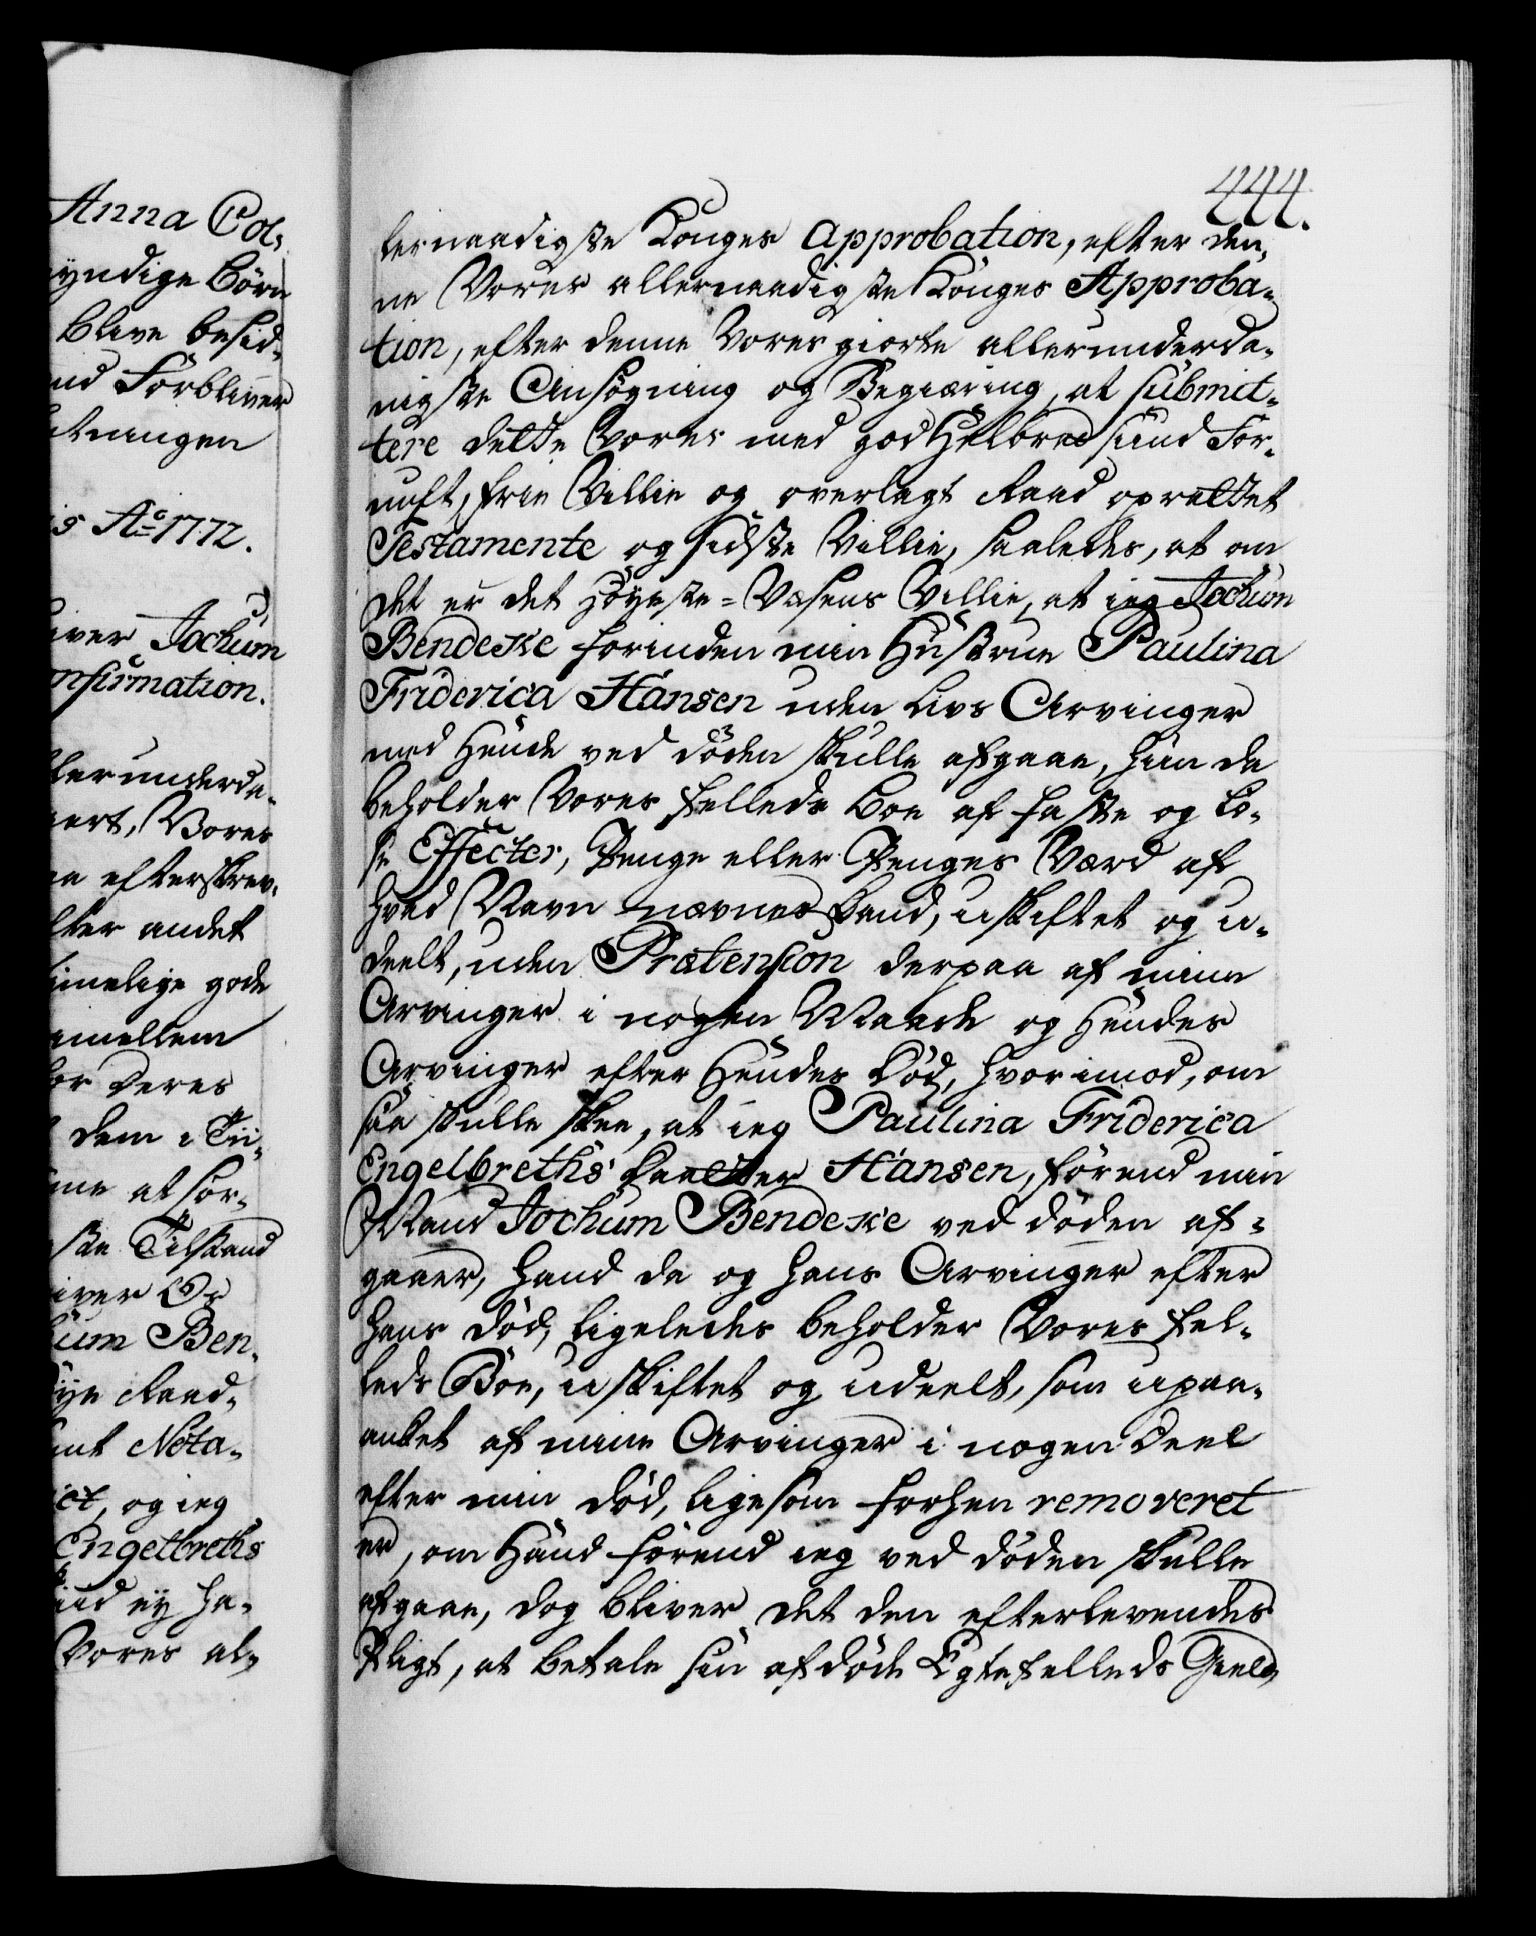 Anna Col-
yndige Börn
blive besid-
nd Forbliver
etningen
is Ao 1772.
iver Jochum
onfirmation.
ller underda-
nert, Vores
en efterskrev-
fter andet
imelige gode
imellem
for deres
dem i Tii-
me at for-
ske Tilstand
iver Os
hum Ben-
Raad-
nt Nota-
ict, og ieg
Engelbreths
nd ey ha-
Vores al-
444.
lernaadigste Konges Approbation, efter den-
ne Vores allernaadigste Konges Approba-
tion, efter denne Vores giorte allerunderda-
nigste Ansøgning og Begiæring, at submit-
tere dette Vores med god Helbred sund For-
nuft, frie Villie og overlagt Raad oprettet
Testamente og sidste Villie, saaledes, at om
det er det Høyeste-Væsens Villie, at ieg Jochum
Bendeske forinden min Hustrue Paulina
Friderica Hansen uden Livs Arvinger
med Hende ved døden skulle afgaae, hun da
beholder Vores fælleds Boe af faste og Lø-
se Effecter, Penge eller Penges Værd af
hvad Navn nævnes kand, uskiftet og u-
deelt, uden Prætension derpaa af mine
Arvinger i nogen Maade og Hendes
Arvinger efter Hendes Død, hvorimod, om
saa skulle skee, at ieg Paulina Friderica
Engelbreths Daatter Hansen, førend min
Mand Jochum Bendeske ved døden af-
gaaer, hand da og hans Arvinger efter
hans død, ligeledes beholder Vores fæl-
leds Boe, uskiftet og udeelt, som upaa-
anket af mine Arvinger i nogen Deel
efter min død, ligesom forhen removeret
er, om Hand førend ieg ved døden skulle
afgaae, dog bliver det den efterlevendes
Pligt, at betale sin afdøde Egtefælleds Gield,